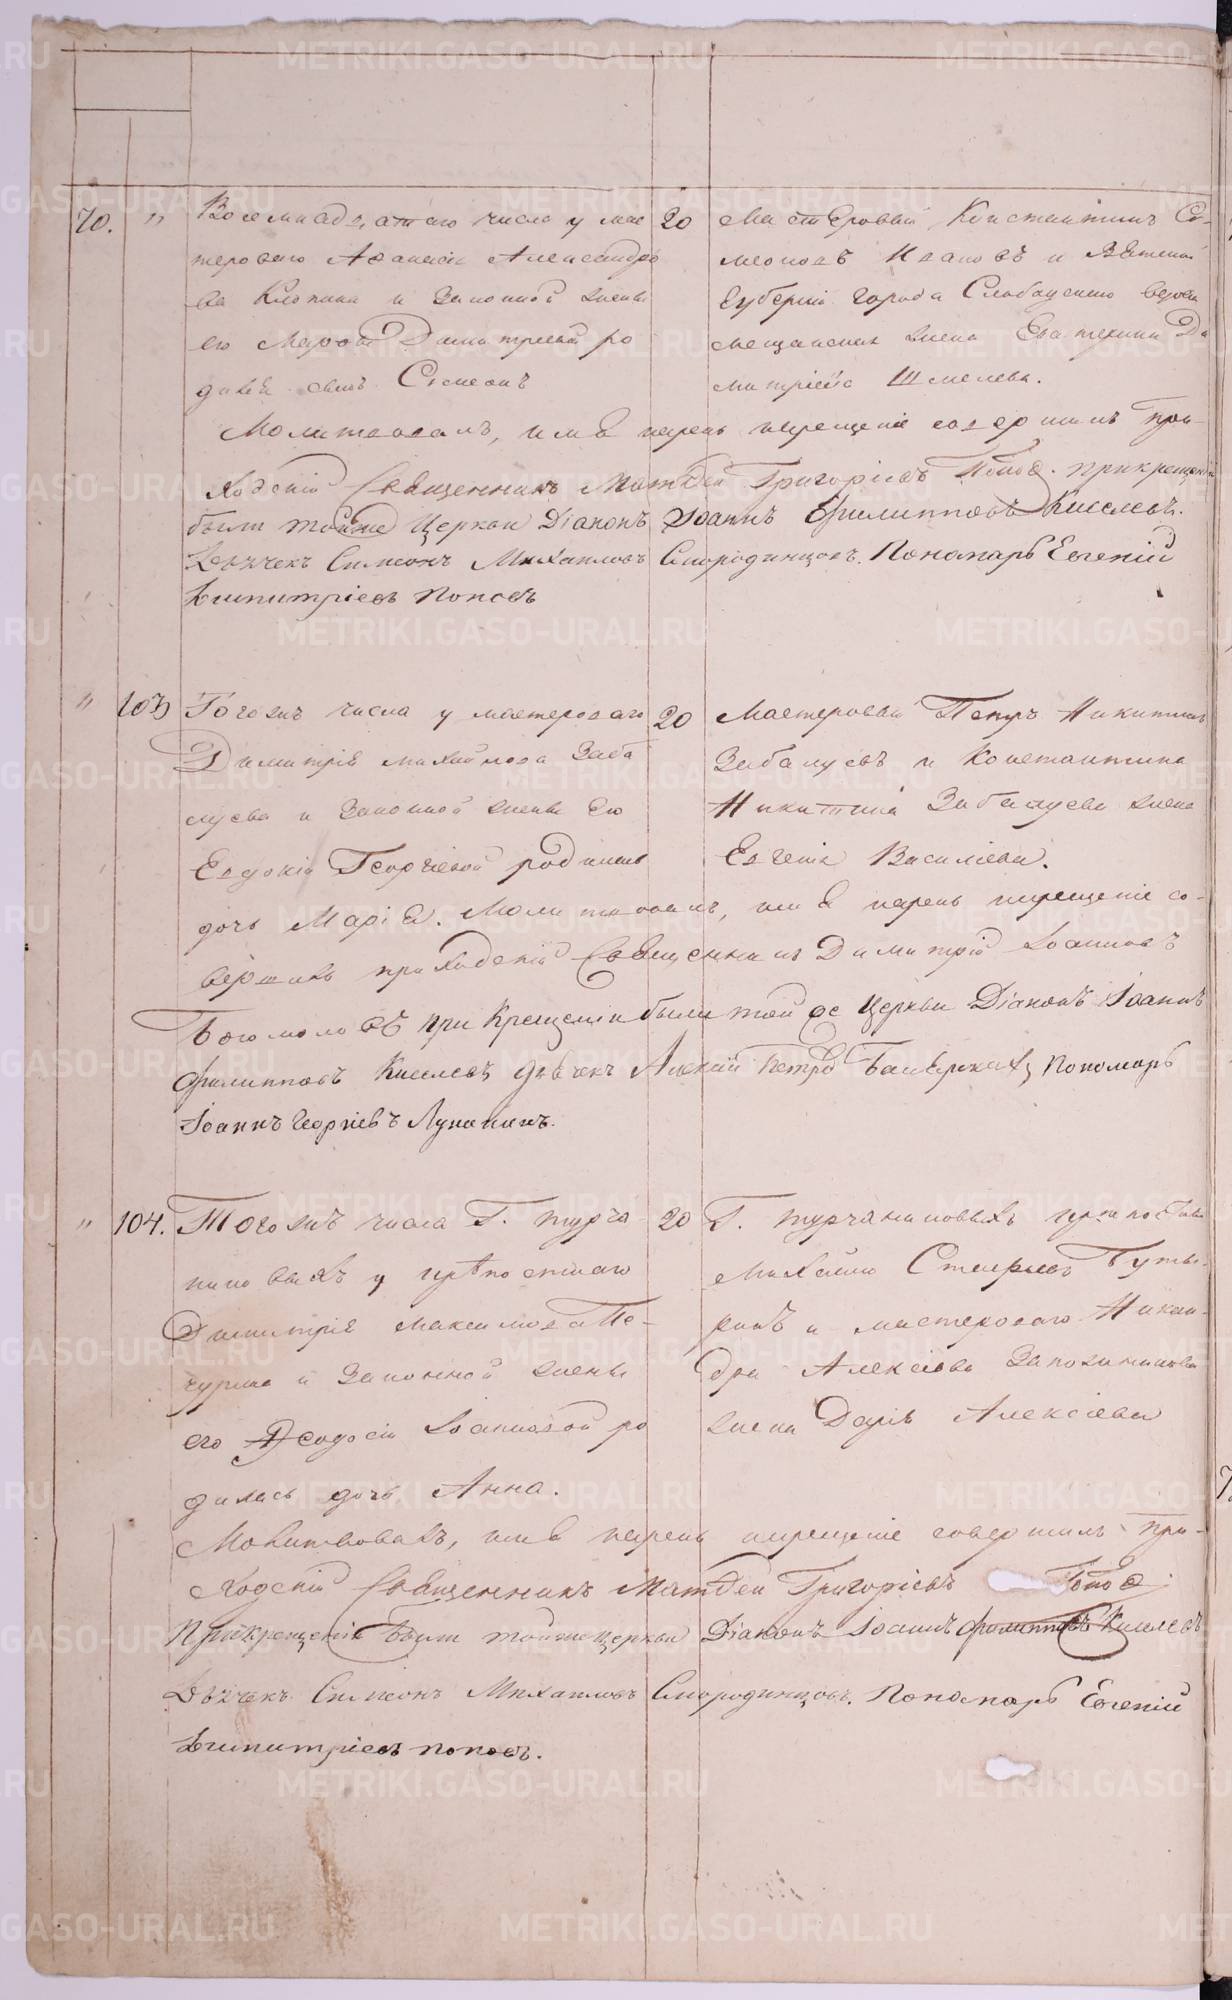 METRIKI.GASO-URAL.RU
70. " Восемнадцатаго числа у мас
тероваго Афанасія Александро
ва Клопина и Законной жены
его Марфы Димитріевой ро
дился сынъ Симеонъ
20 Мастеровый Константинъ Си-
меоновъ Ивановъ и Вятской
Губерніи города Слободскаго
мещанская жена Екатерина Ди
митріева Шмелева.
Молитвовалъ, имя нарекъ и крещеніе совершилъ При-
ходскій Священникъ Матвѣй Григорьевъ Поповъ. При крещеніи
были тойже Церкви Діаконъ Іоаннъ Филипповъ Киселевъ.
Дьячекъ Симеонъ Михайловъ Смородинцовъ. Пономарь Евгеній
Димитріевъ Поповъ
" 103 Тогожъ числа у мастероваго
Димитрія Михайлова Заба
луева и Законной жены Его
Евдокіи Георгіевой родилась
дочь Марія.
20 Мастеровый Петръ Никитинъ
Забалуевъ и Константина
Никитина Забалуева жена
Евгенія Васильева.
Молитвовалъ, имя нарекъ и крещеніе со-
вершилъ приходскій Священникъ Димитрій Іоанновъ
Богомоловъ При Крещеніи были той же Церкви Діаконъ Іоаннъ
Филипповъ Киселевъ дьячекъ Алексій Петровъ Пономарь
Іоаннъ Георгіевъ Лукинъ.
" 104. Тогожъ числа Г. Турча
ниновыхъ у крѣпостнаго
Димитрія Максимова Пе-
чурина и Законной жены
его Феодосіи Іоанновой ро
дилась дочь Анна.
20 Г. Турчаниновыхъ крѣпостный
Михаилъ Буты-
ринъ и мастероваго Никан-
дра Алексіева жена
Дарья Алексіева
Молитвовалъ, имя нарекъ и крещеніе совершилъ При-
ходскій Священникъ Матвѣй Григорьевъ Поповъ.
При крещеніи были тойже церкви Діаконъ Іоаннъ Филипповъ Киселевъ
Дьячекъ Симеонъ Михайловъ Смородинцовъ. Пономарь Евгеній
Димитріевъ Поповъ.